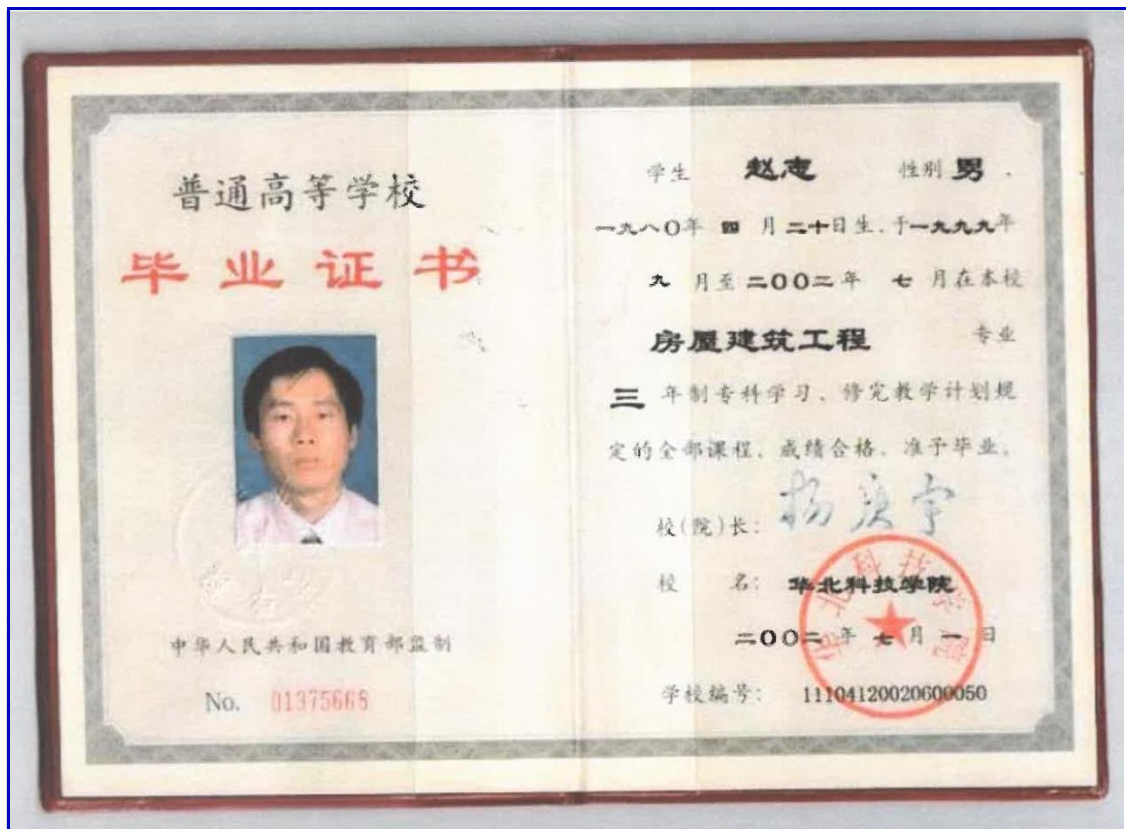 普通高等学校
毕业证书
中华人民共和国教育部监制
No. 01375668
学生 赵志 性别 男 .
一九八〇年 四 月二十日生,于一九九九年
九 月至二〇〇二年 七 月在本校
房屋建筑工程 专业
三 年制专科学习、修完教学计划规
定的全部课程,成绩合格,准予毕业。
校(院)长:
校 名: 华北科技学院
二〇〇二 年 七 月 一 日
学校编号: 11104120020600050
华北科技学院